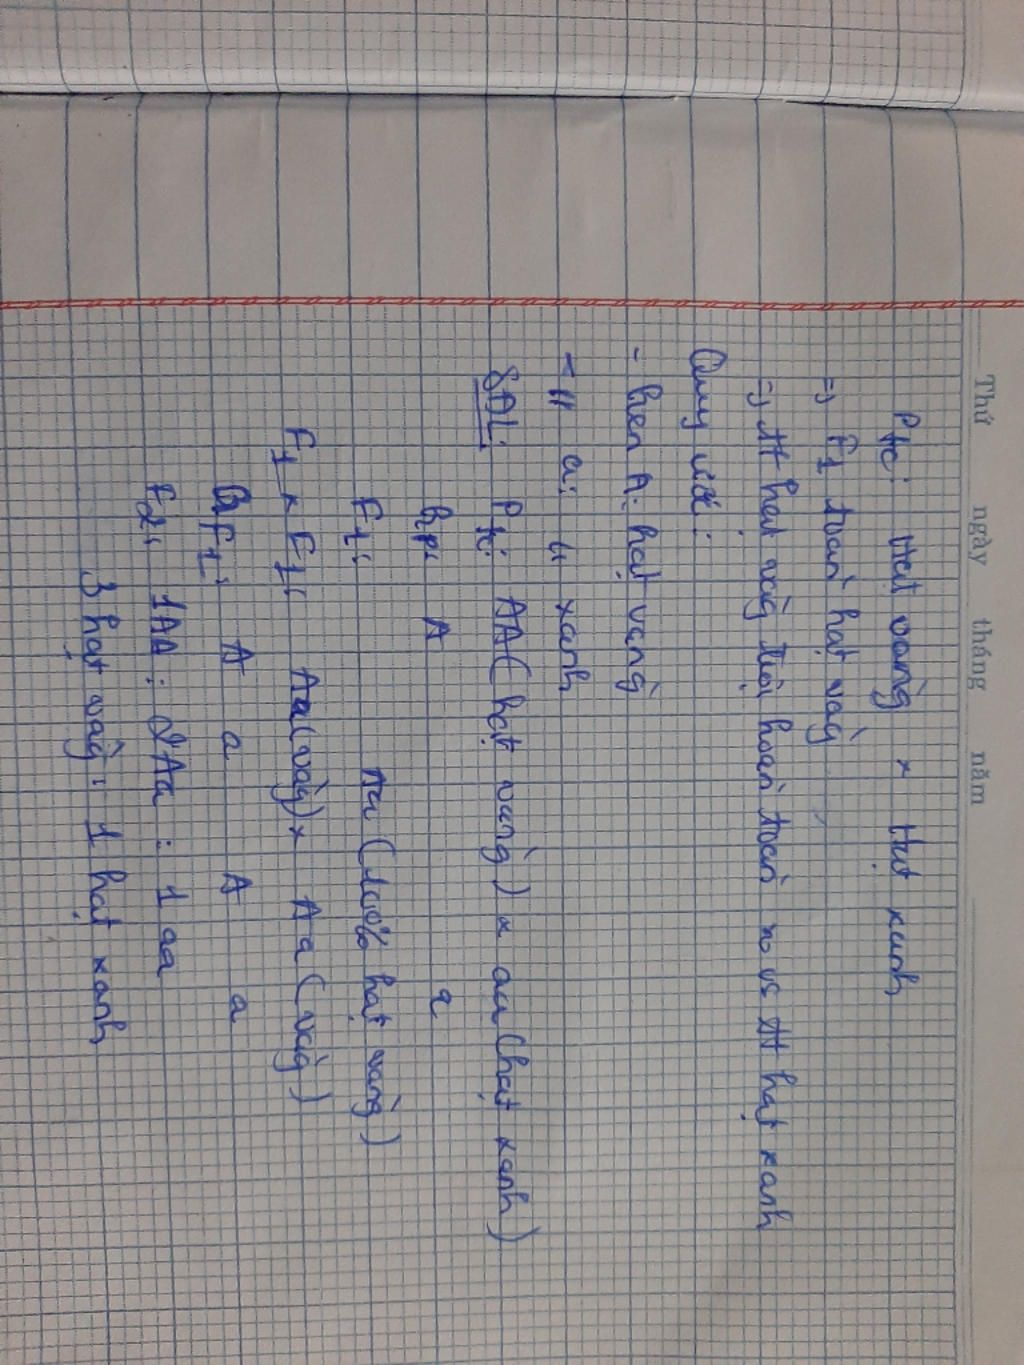 Thứ ngày tháng năm
Ptc: Hạt vàng × Hạt xanh
=> F1 toàn hạt vàg
=> tt hạt vàg trội hoàn toàn so vs tt hạt xanh
Quy ước:
- hien A: hạt vàng
- " a: " xanh
SĐL: Ptc: AA (hạt vàng) × aa (hạt xanh)
Gp: A a
F1: Aa (100% hạt vàng)
F1 × F1: Aa (vàg) × Aa (vàg)
GF1: A a A a
F2: 1AA : 2Aa : 1aa
3 hạt vàg : 1 hạt xanh